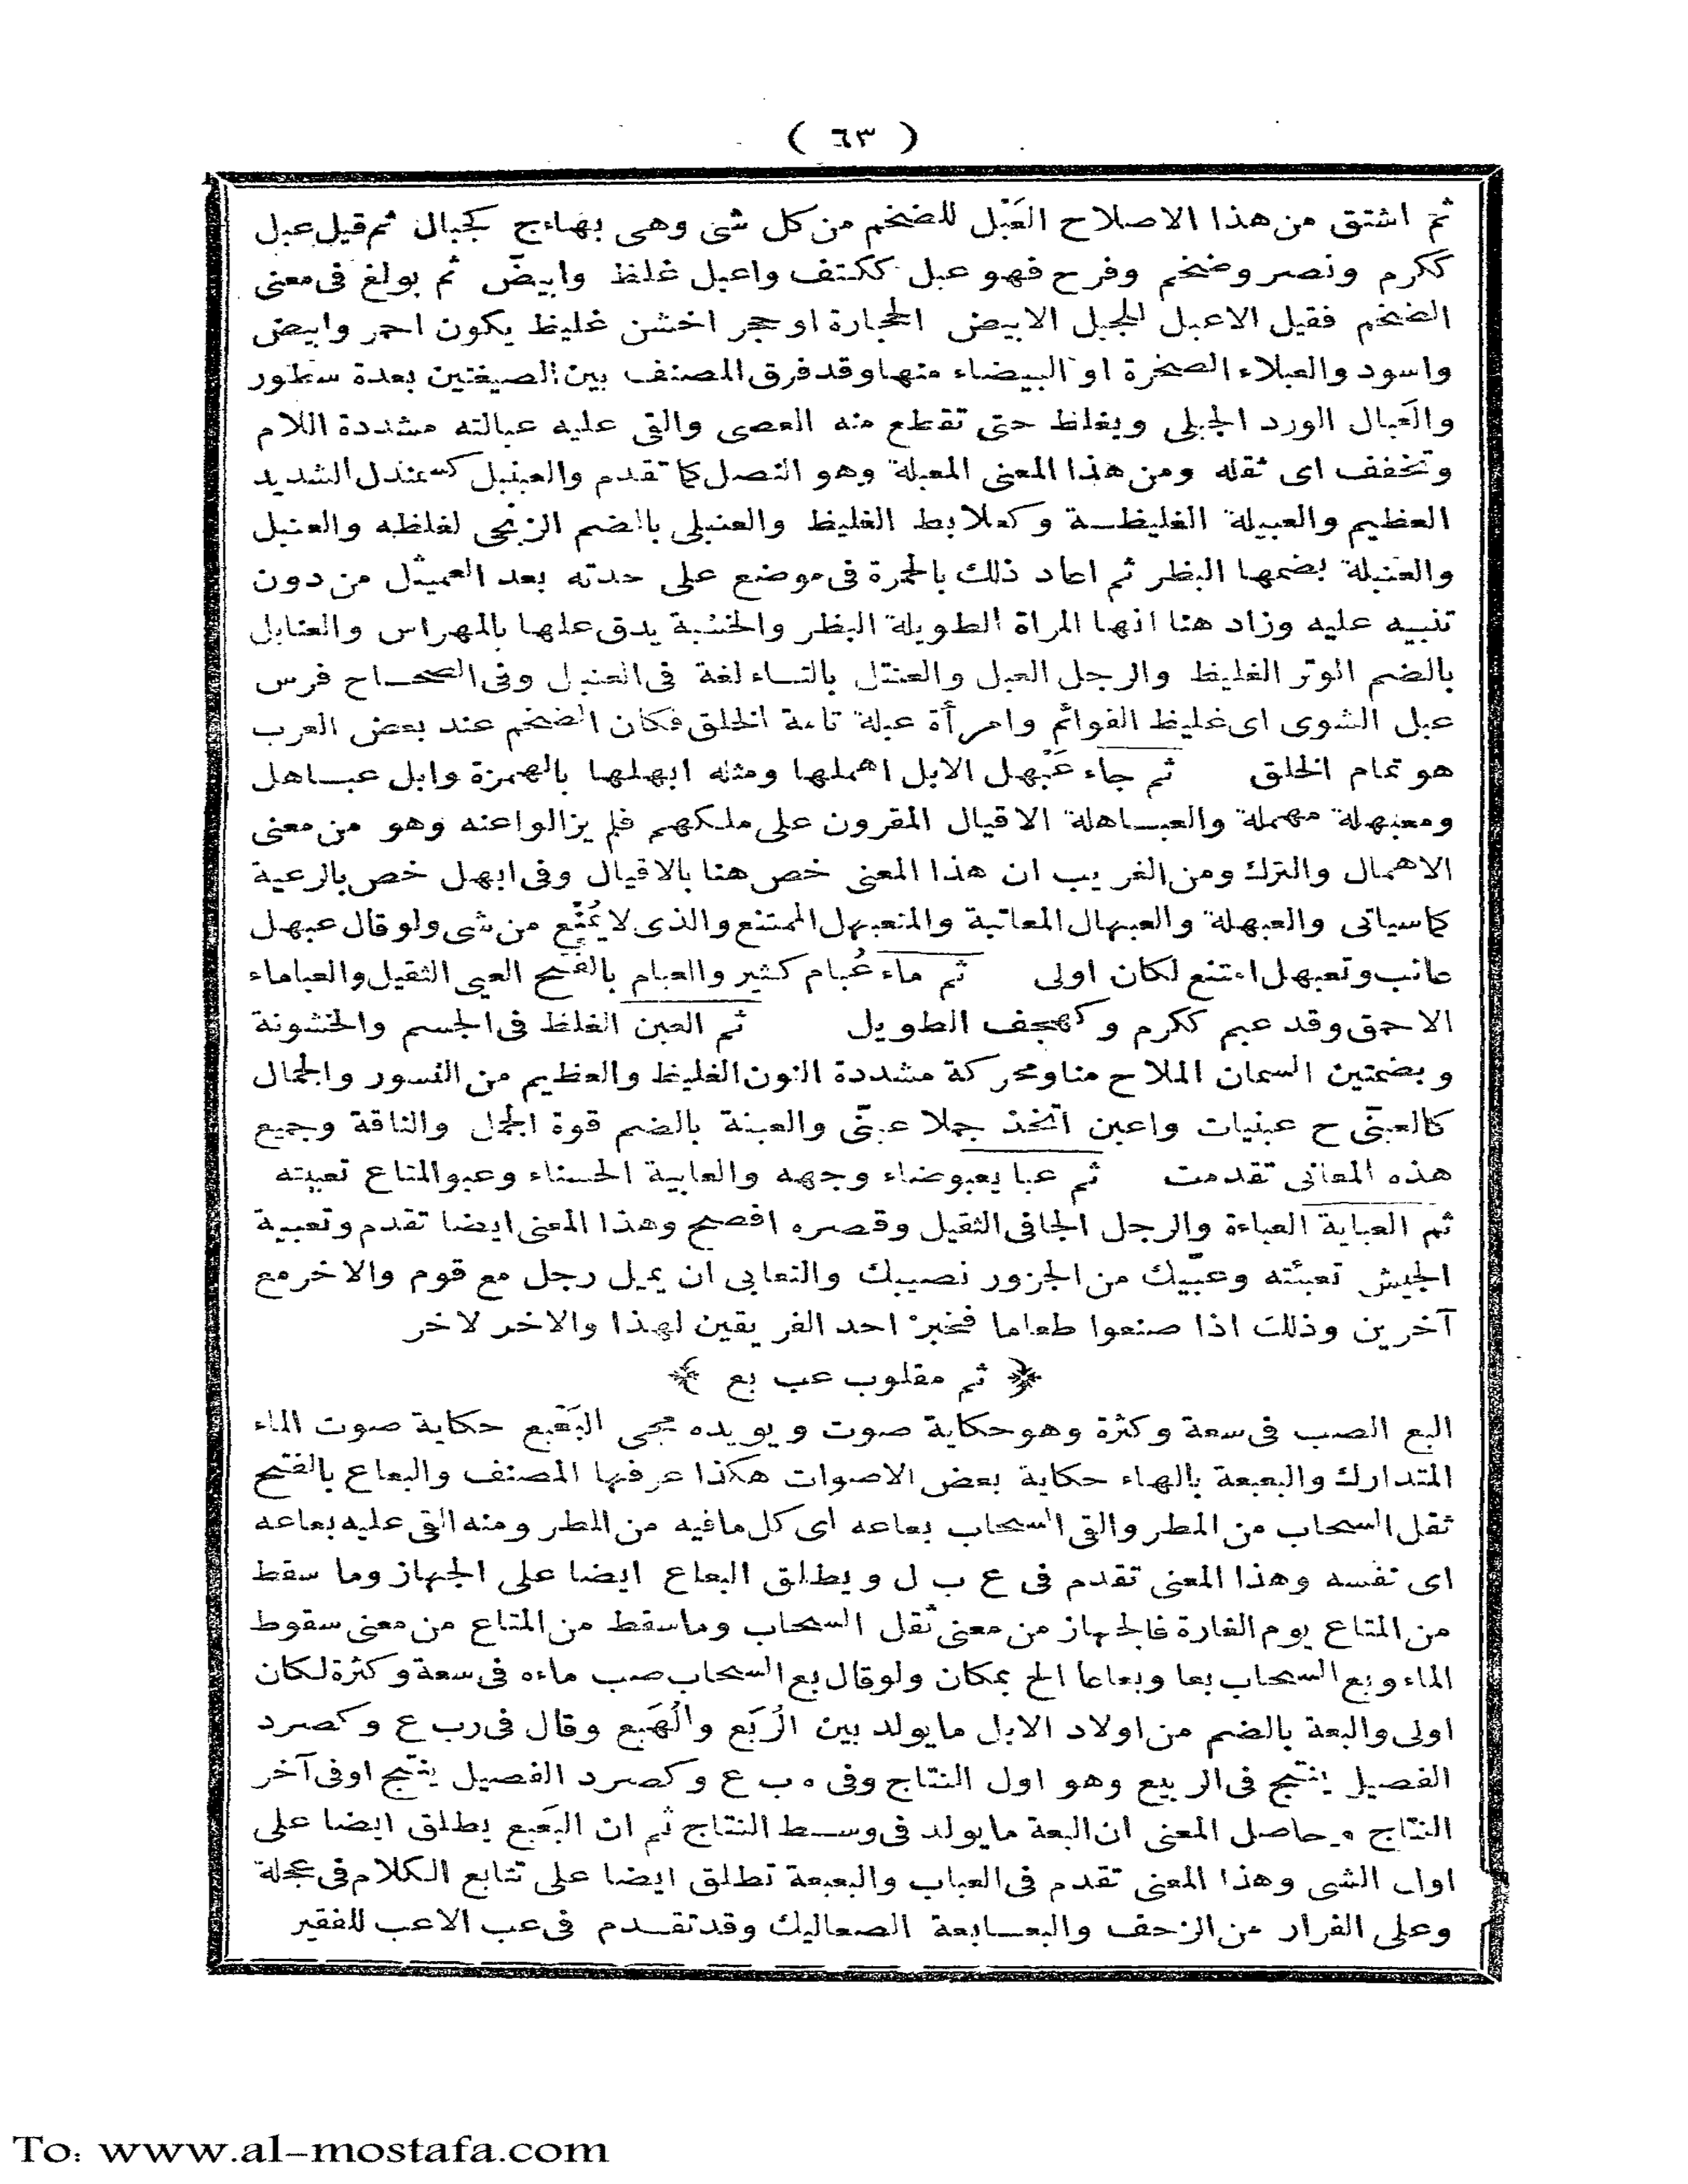 ( ٦٣ )
ثم اشتق من هذا الاصلاح العَبْل للضخم من كل شئ وهى بهاء ج كجبال ثم قيل عبل
ككرم ونصر وضخم وفرح فهو عبل ككتف واعبل غلظ وابيضّ ثم بولغ فى معنى
الضخم فقيل الاعبل للجبل الابيض الحجارة او حجر اخشن غليظ يكون احمر وابيض
واسود والعبلاء الصخرة او البيضاء منها وقد فرق المصنف بين الصيغتين بعدة سطور
والعَبال الورد الجبلى ويغلظ حتى تقطع منه العصى والقى عليه عبالته مشددة اللام
وتخفف اى ثقله ومن هذا المعنى المعبلة وهو النصل كما تقدم والعبنبل كسمندل الشديد
العظيم والعبيلة الغليظة وكعلابط الغليظ والعنبلى بالضم الزنجى لغلظه والعنبل
والعنبلة بضمها البظر ثم اعاد ذلك بالحمرة فى موضع على حدته بعد العميثل من دون
تنبيه عليه وزاد هنا انها المراة الطويلة البظر والخشبة يدق عليها بالمهراس والعنابل
بالضم الوتر الغليظ والرجل العبل والعنتل بالتاء لغة فى العنبل وفى الصحاح فرس
عبل الشوى اى غليظ القوائم وامرأة عبلة تامة الخلق فكان الضخم عند بعض العرب
هو تمام الخلق ثم جاء عَبْهل الابل اهملها ومثله ابهلها بالهمزة وابل عباهل
ومعبهلة مهملة والعباهلة الاقيال المقرون على ملكهم فلم يزالوا عنه وهو من معنى
الاهمال والترك ومن الغريب ان هذا المعنى خص هنا بالاقيال وفى ابهل خص بالرعية
كما سياتى والعبهلة والعبهال المعاتبة والمتعبهل الممتنع والذى لا يُمنَع من شى ولو قال عبهل
عاتب وتعبهل امتنع لكان اولى ثم ماء عُبام كثير والعبام بالفتح العيى الثقيل والعباماء
الاحمق وقد عبم ككرم وكهجف الطويل ثم العبن الغلظ فى الجسم والخشونة
وبضمتين السمان الملاح منا ومحركة مشددة النون الغليظ والعظيم من النسور والجمال
كالعبنّى ح عبنيات واعبن اتخذ جملا عبنّى والعبنة بالضم قوة الجمل والناقة وجميع
هذه المعانى تقدمت ثم عبا يعبو ضاء وجهه والعابية الحسناء وعبو المتاع تعبيته
ثم العباية العباءة والرجل الجافى الثقيل وقصره افصح وهذا المعنى ايضا تقدم وتعبية
الجيش تعبئته وعبّيك من الجزور نصيبك والتعابى ان يميل رجل مع قوم والاخر مع
آخرين وذلك اذا صنعوا طعاما فخبز احد الفريقين لهذا والاخر لاخر
﴿ ثم مقلوب عب بع ﴾
البع الصب فى سعة وكثرة وهو حكاية صوت ويويده مجى البَعْبع حكاية صوت الماء
المتدارك والبعبعة بالهاء حكاية بعض الاصوات هكذا عرفها المصنف والبعاع بالفتح
ثقل السحاب من المطر والقى السحاب بعاعه اى كل ما فيه من المطر ومنه القى عليه بعاعه
اى نفسه وهذا المعنى تقدم فى ع ب ل ويطلق البعاع ايضا على الجهاز وما سقط
من المتاع يوم الغارة فالجهاز من معنى ثقل السحاب وما سقط من المتاع من معنى سقوط
الماء وبع السحاب بعا وبعاعا الح بمكان ولو قال بع السحاب صب ماءه فى سعة وكثرة لكان
اولى والبعة بالضم من اولاد الابل ما يولد بين الرُبَع والهُبَع وقال فى رب ع وكصرد
الفصيل ينتج فى الربيع وهو اول النتاج وفى ه ب ع وكصرد الفصيل ينتج او فى آخر
النتاج وحاصل المعنى ان البعة ما يولد فى وسط النتاج ثم ان البَعبع يطلق ايضا على
اول الشى وهذا المعنى تقدم فى العباب والبعبعة تطلق ايضا على تتابع الكلام فى عجلة
وعلى الفرار من الزحف والبعابعة الصعاليك وقد تقدم فى عب الاعب للفقير
To: www.al-mostafa.com